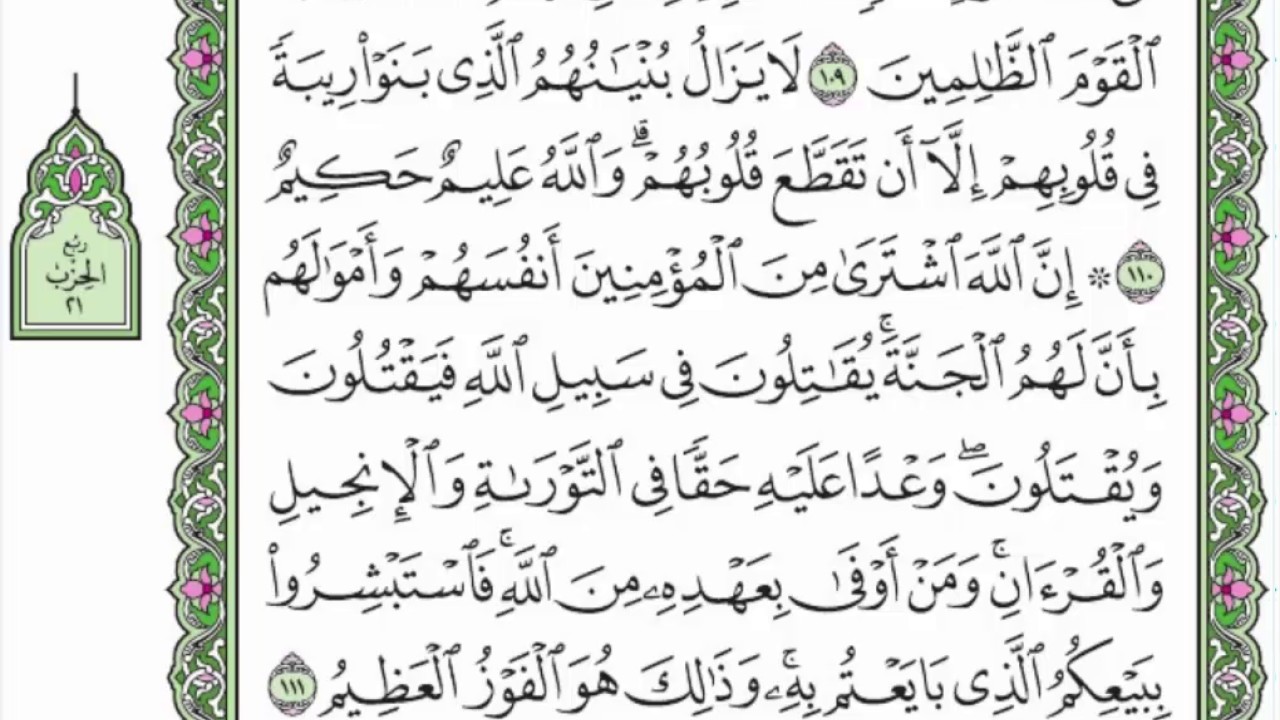 ٱلۡقَوۡمَ ٱلظَّٰلِمِينَ ١٠٩ لَا يَزَالُ بُنۡيَٰنُهُمُ ٱلَّذِي بَنَوۡاْ رِيبَةٗ
فِي قُلُوبِهِمۡ إِلَّآ أَن تَقَطَّعَ قُلُوبُهُمۡۗ وَٱللَّهُ عَلِيمٌ حَكِيمٌ
١١٠ ۞ إِنَّ ٱللَّهَ ٱشۡتَرَىٰ مِنَ ٱلۡمُؤۡمِنِينَ أَنفُسَهُمۡ وَأَمۡوَٰلَهُم
بِأَنَّ لَهُمُ ٱلۡجَنَّةَۚ يُقَٰتِلُونَ فِي سَبِيلِ ٱللَّهِ فَيَقۡتُلُونَ
وَيُقۡتَلُونَۖ وَعۡدًا عَلَيۡهِ حَقّٗا فِي ٱلتَّوۡرَىٰةِ وَٱلۡإِنجِيلِ
وَٱلۡقُرۡءَانِۚ وَمَنۡ أَوۡفَىٰ بِعَهۡدِهِۦ مِنَ ٱللَّهِۚ فَٱسۡتَبۡشِرُواْ
بِبَيۡعِكُمُ ٱلَّذِي بَايَعۡتُم بِهِۦۚ وَذَٰلِكَ هُوَ ٱلۡفَوۡزُ ٱلۡعَظِيمُ ١١١
ربع
الحزب
٢١